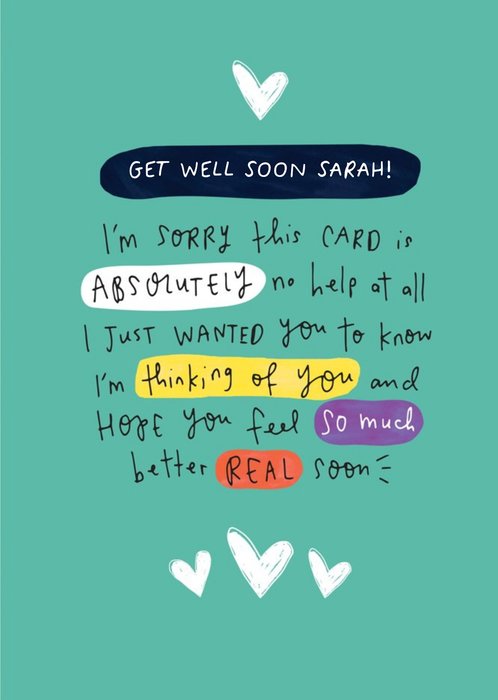 GET WELL SOON SARAH!
I'm SORRY this CARD is
ABSOLUTELY no help at all
I JUST WANTED you to know
I'm thinking of you and
HOPE you feel so much
better REAL soon